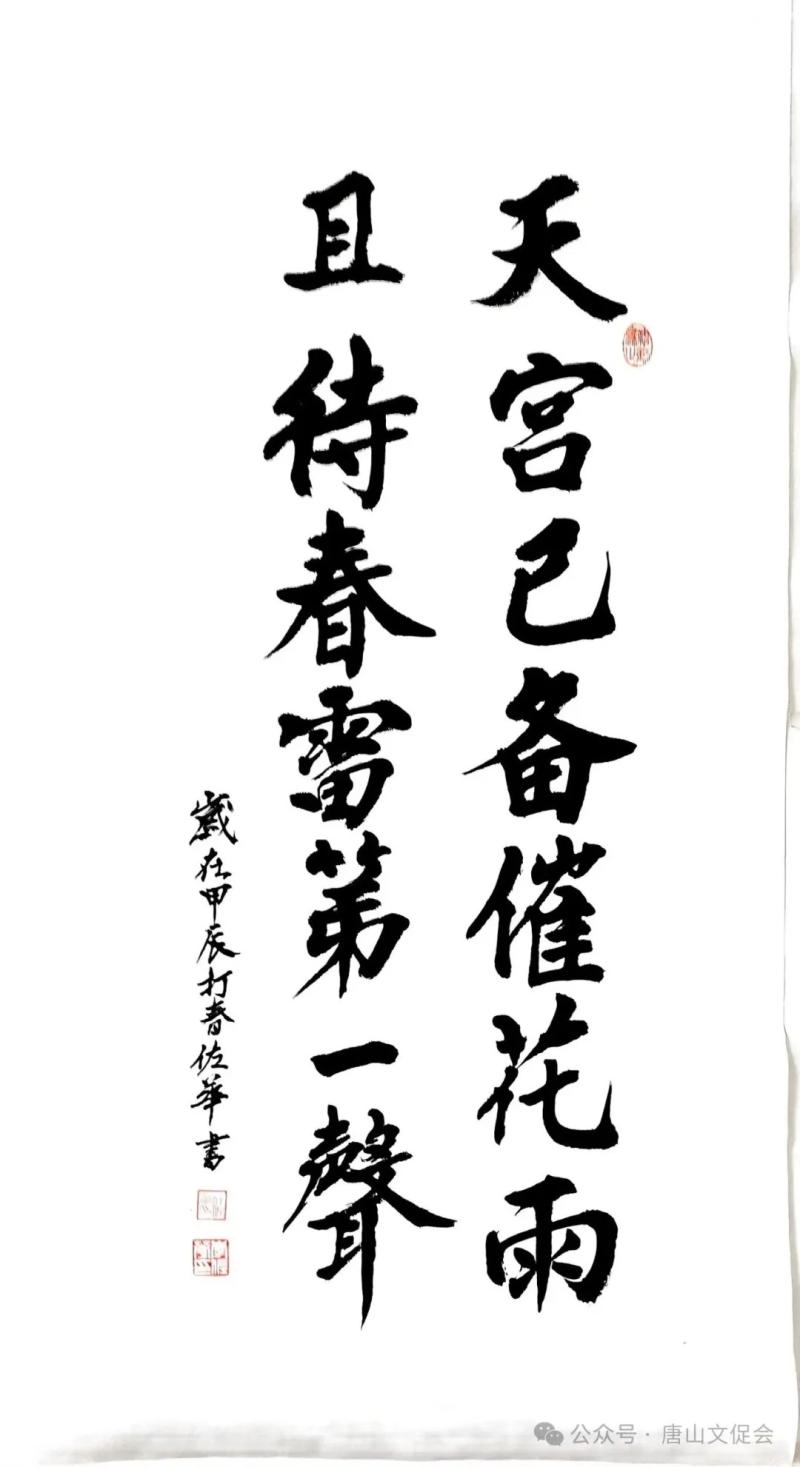 天宫已备催花雨
且待春雷第一聲
歲在甲辰打春佐華書
公众号·唐山文促会